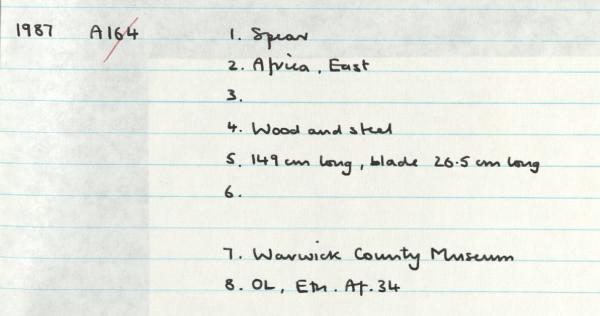 1987 A164 1. Spear
2. Africa, East
3.
4. Wood and steel
5. 149 cm long, blade 26.5 cm long
6.
7. Warwick County Museum
8. OL, Eth. Af. 34